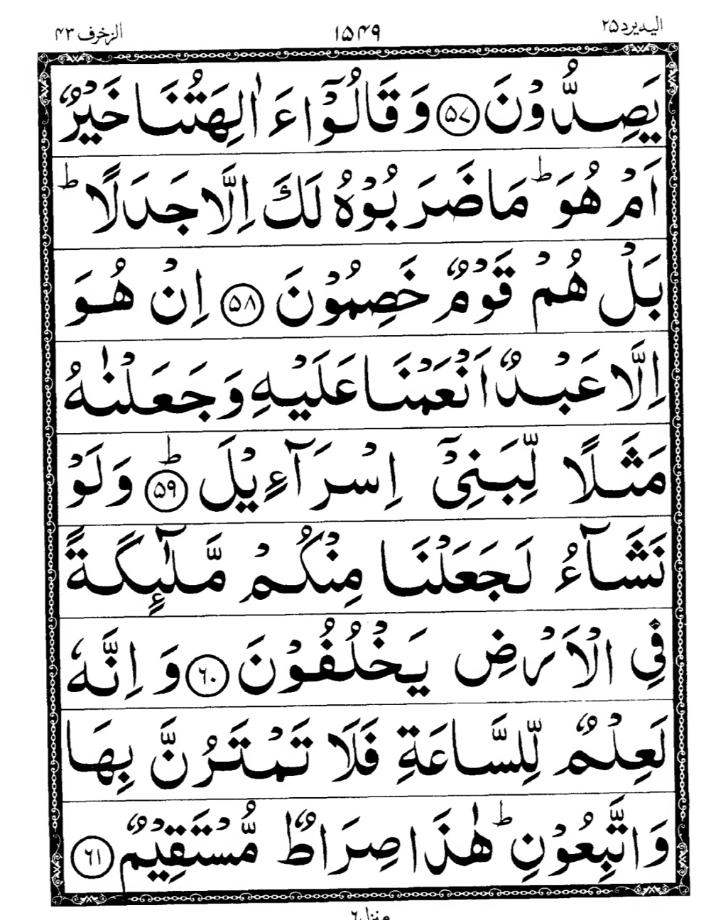 الیہ یرد ۲۵ ۱۵۴۹ الزخرف ۴۳
یَصِدُّوْنَ ﴿۵۷﴾ وَ قَالُوْۤا ءَاٰلِهَتُنَا خَیْرٌ
اَمْ هُوَ ؕ مَا ضَرَبُوْهُ لَكَ اِلَّا جَدَلًا ؕ
بَلْ هُمْ قَوْمٌ خَصِمُوْنَ ﴿۵۸﴾ اِنْ هُوَ
اِلَّا عَبْدٌ اَنْعَمْنَا عَلَیْهِ وَ جَعَلْنٰهُ
مَثَلًا لِّبَنِیْۤ اِسْرَآءِیْلَ ﴿۵۹﴾ؕ وَ لَوْ
نَشَآءُ لَجَعَلْنَا مِنْكُمْ مَّلٰٓىِٕكَةً
فِی الْاَرْضِ یَخْلُفُوْنَ ﴿۶۰﴾ وَ اِنَّهٗ
لَعِلْمٌ لِّلسَّاعَةِ فَلَا تَمْتَرُنَّ بِهَا
وَ اتَّبِعُوْنِ ؕ هٰذَا صِرَاطٌ مُّسْتَقِیْمٌ ﴿۶۱﴾
منزل ۶